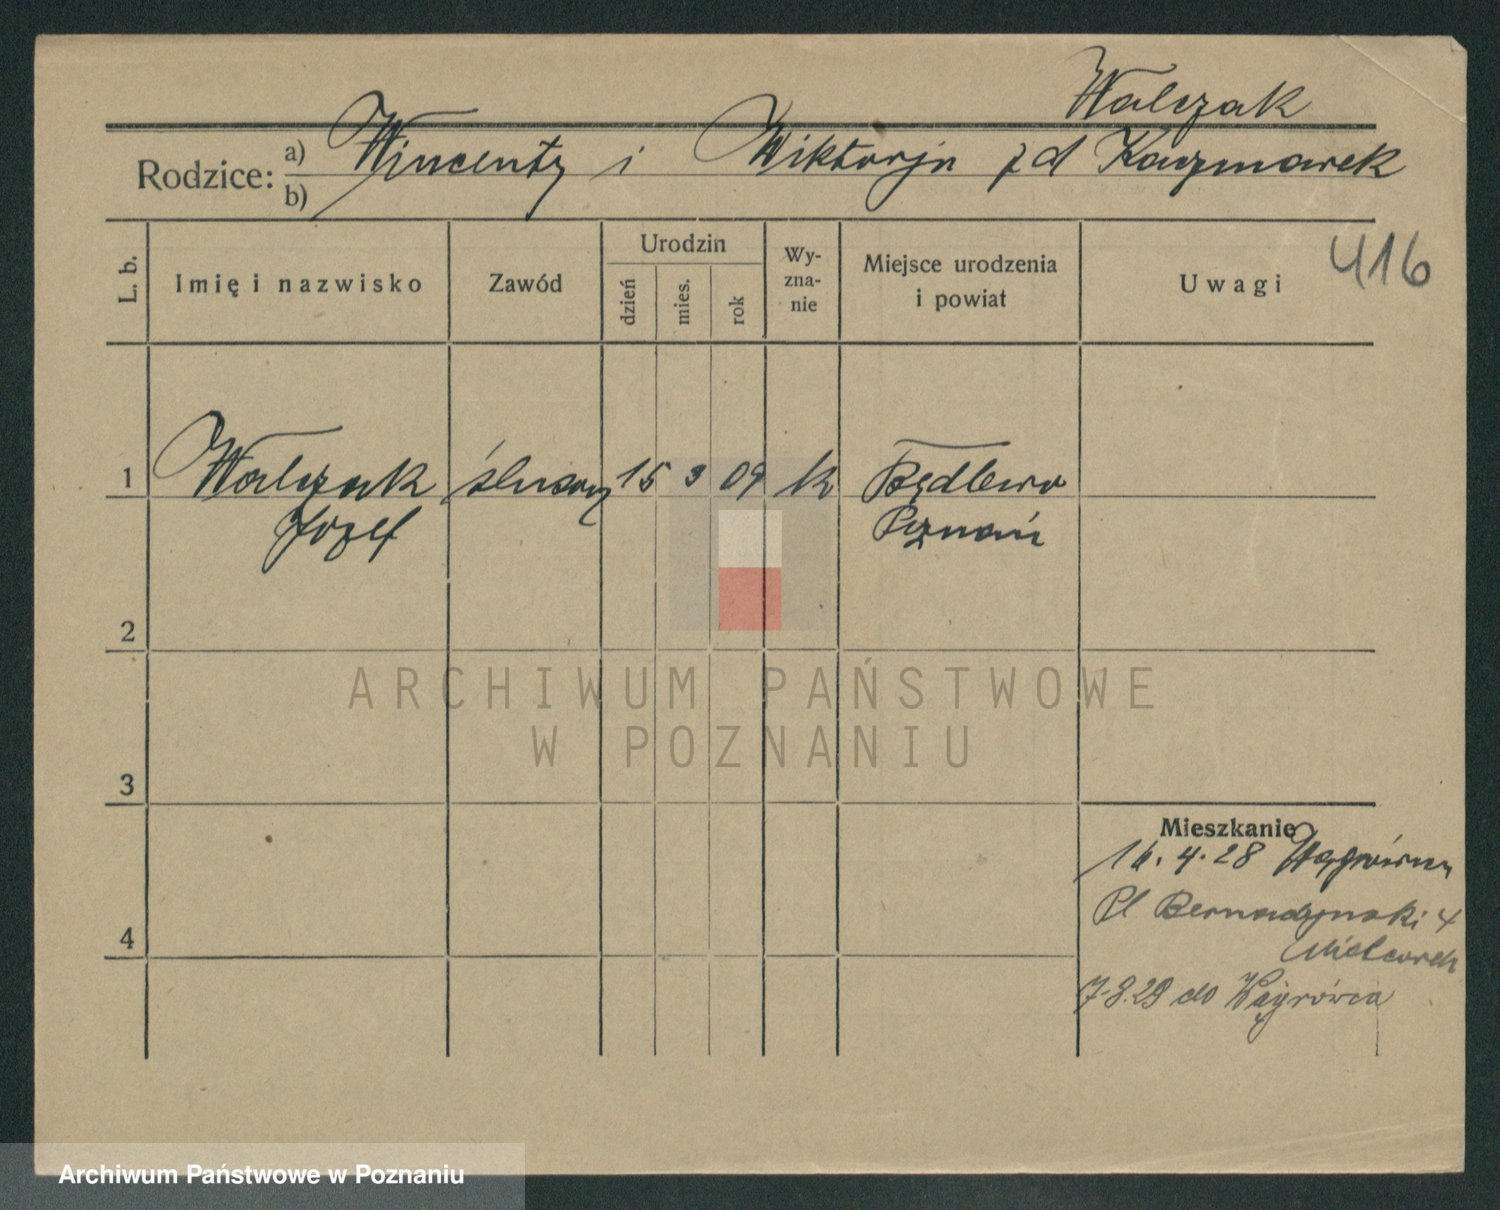 Walczak
Rodzice: a) Wincenty i Wiktorja z d Kaczmarek
b)
L. b.
Imię i nazwisko
Zawód
Urodzin
dzień
mies.
rok
Wy-
zna-
nie
Miejsce urodzenia
i powiat
Uwagi
416
1 Walczak ślusarz 15 3 09 k Będlewo
Józef Poznań
2
3
4
Mieszkanie
16. 4. 28
Pl Bernadynski 4
7.3.29 do Wągrówca
ARCHIWUM PAŃSTWOWE
W POZNANIU
Archiwum Państwowe w Poznaniu